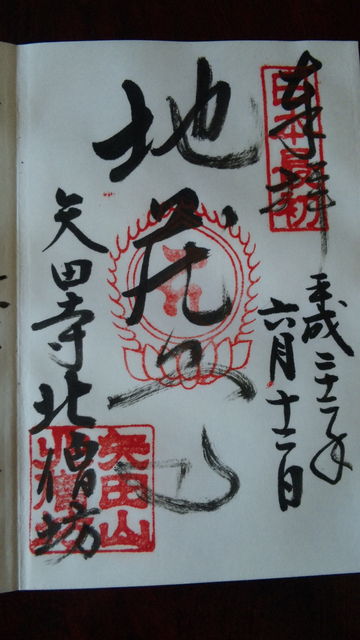 奉拝
日本最初
平成二十二年
六月十二日
地蔵
矢田寺北僧坊
矢田山
北僧坊